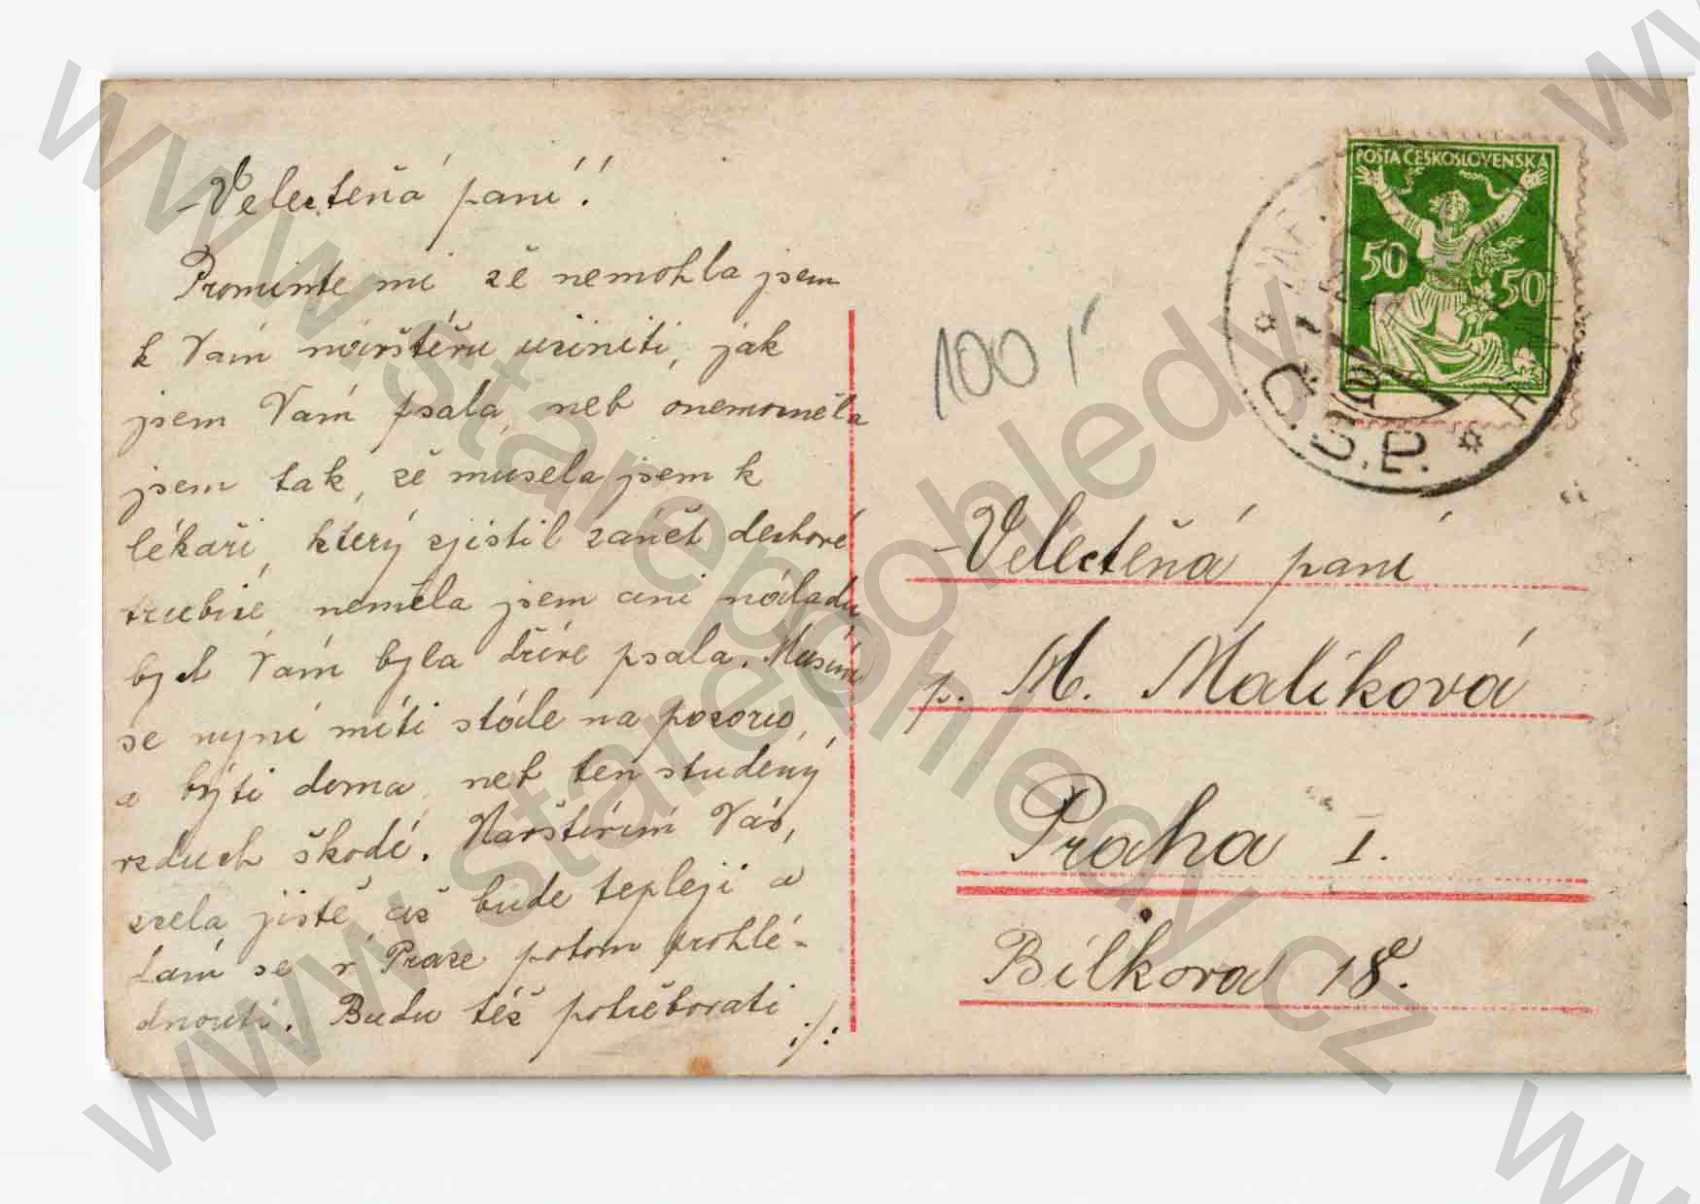 Velectěná paní!
Promiňte mi že nemohla jsem
k Vám návštěvu učiniti, jak
jsem Vám psala, neb onemocněla
jsem tak, že musela jsem k
lékaři, který zjistil zánět dechové
trubice, neměla jsem ani náladu
bych Vám byla dříve psala. Musím
se nyní míti stále na pozoru,
a býti doma, neb ten studený
vzduch škodí. Navštívím Vás,
zcela jistě, až bude tepleji a
dám se v Praze potom prohléd-
dnouti. Budu též potřebovati
./.
100,-
POŠTA ČESKOSLOVENSKÁ
50 50
Č.S.P.
Velectěná paní
p. M. Malíková
Praha I.
Bílkova 18.
www.starepohledy.cz
www.starepohledy.cz